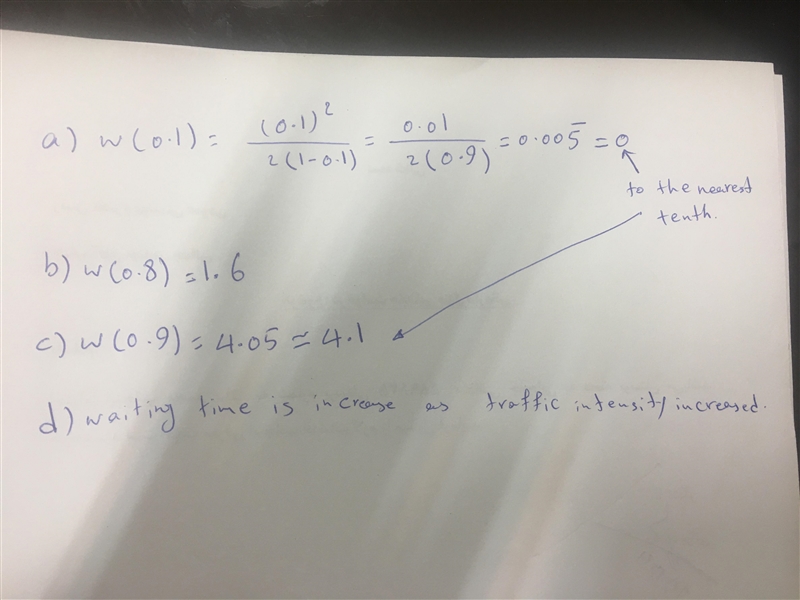 a) w(0.1) = (0.1)² / 2(1-0.1) = 0.01 / 2(0.9) = 0.005̄ = 0
to the nearest
tenth.
b) w(0.8) = 1.6
c) w(0.9) = 4.05 ≃ 4.1
d) waiting time is increase as traffic intensity increased.